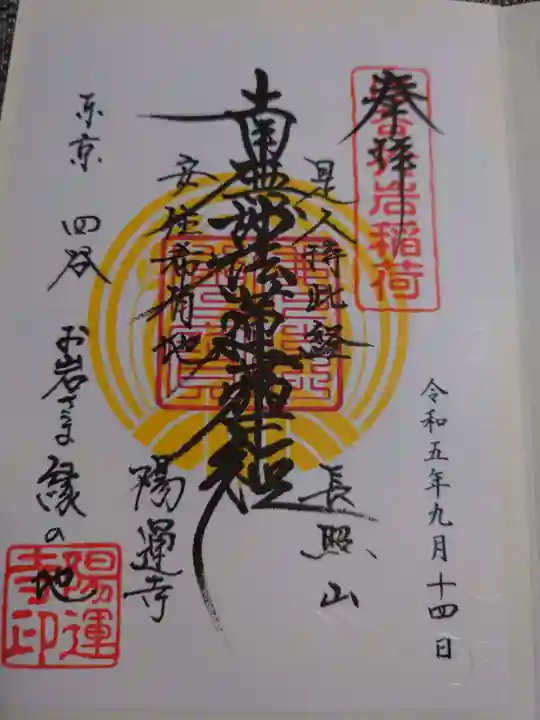 奉拝
岩稲荷
令和五年九月十四日
是人持此経
長照山
南無妙法蓮華経
安住希有地
陽運寺
東京 四谷 お岩さま 縁の地
陽運
寺印